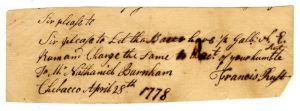 Sir please to
Sir please to Let the Barer have ½ Gall: N. E.
Rum and Charge the Same to Acct of your humble
To Mr Nathaniel Burnham Francis Rust
Chebacco April 28th 1778